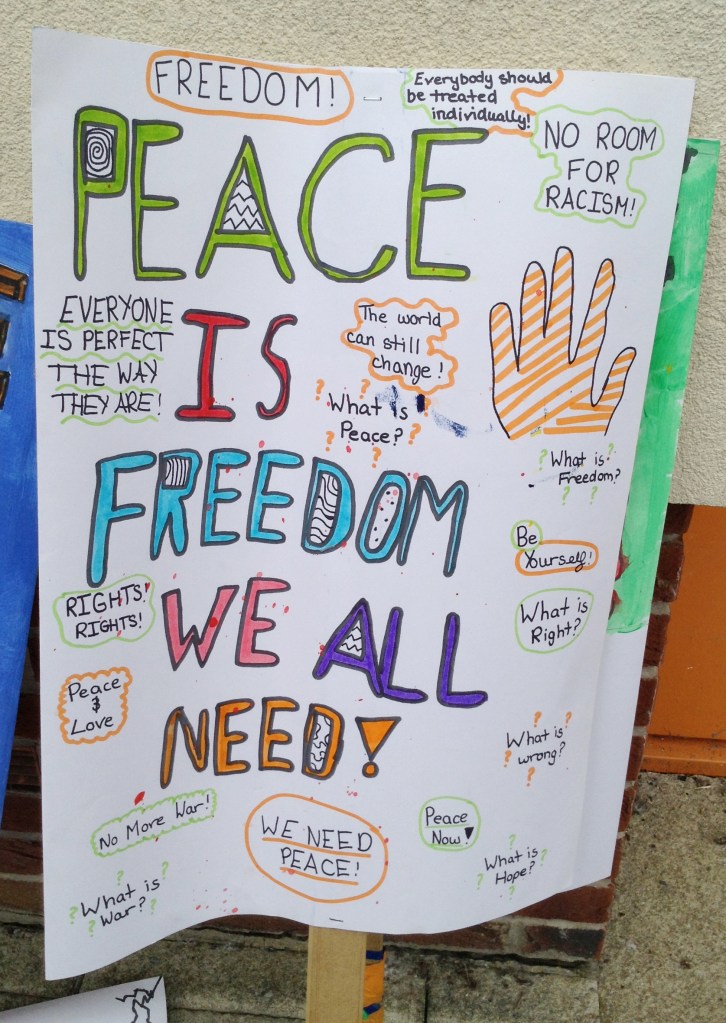 FREEDOM!
Everybody should
be treated
individually!
NO ROOM
FOR
RACISM!
PEACE
EVERYONE
IS PERFECT
THE WAY
THEY ARE!
IS
The world
can still
change!
What is
Peace?
What is
Freedom?
FREEDOM
Be
Yourself!
RIGHTS!
RIGHTS!
WE ALL
What is
Right?
Peace
&
Love
NEED!
What is
wrong?
No More War!
WE NEED
PEACE!
Peace
Now!
What is
Hope?
What is
War?